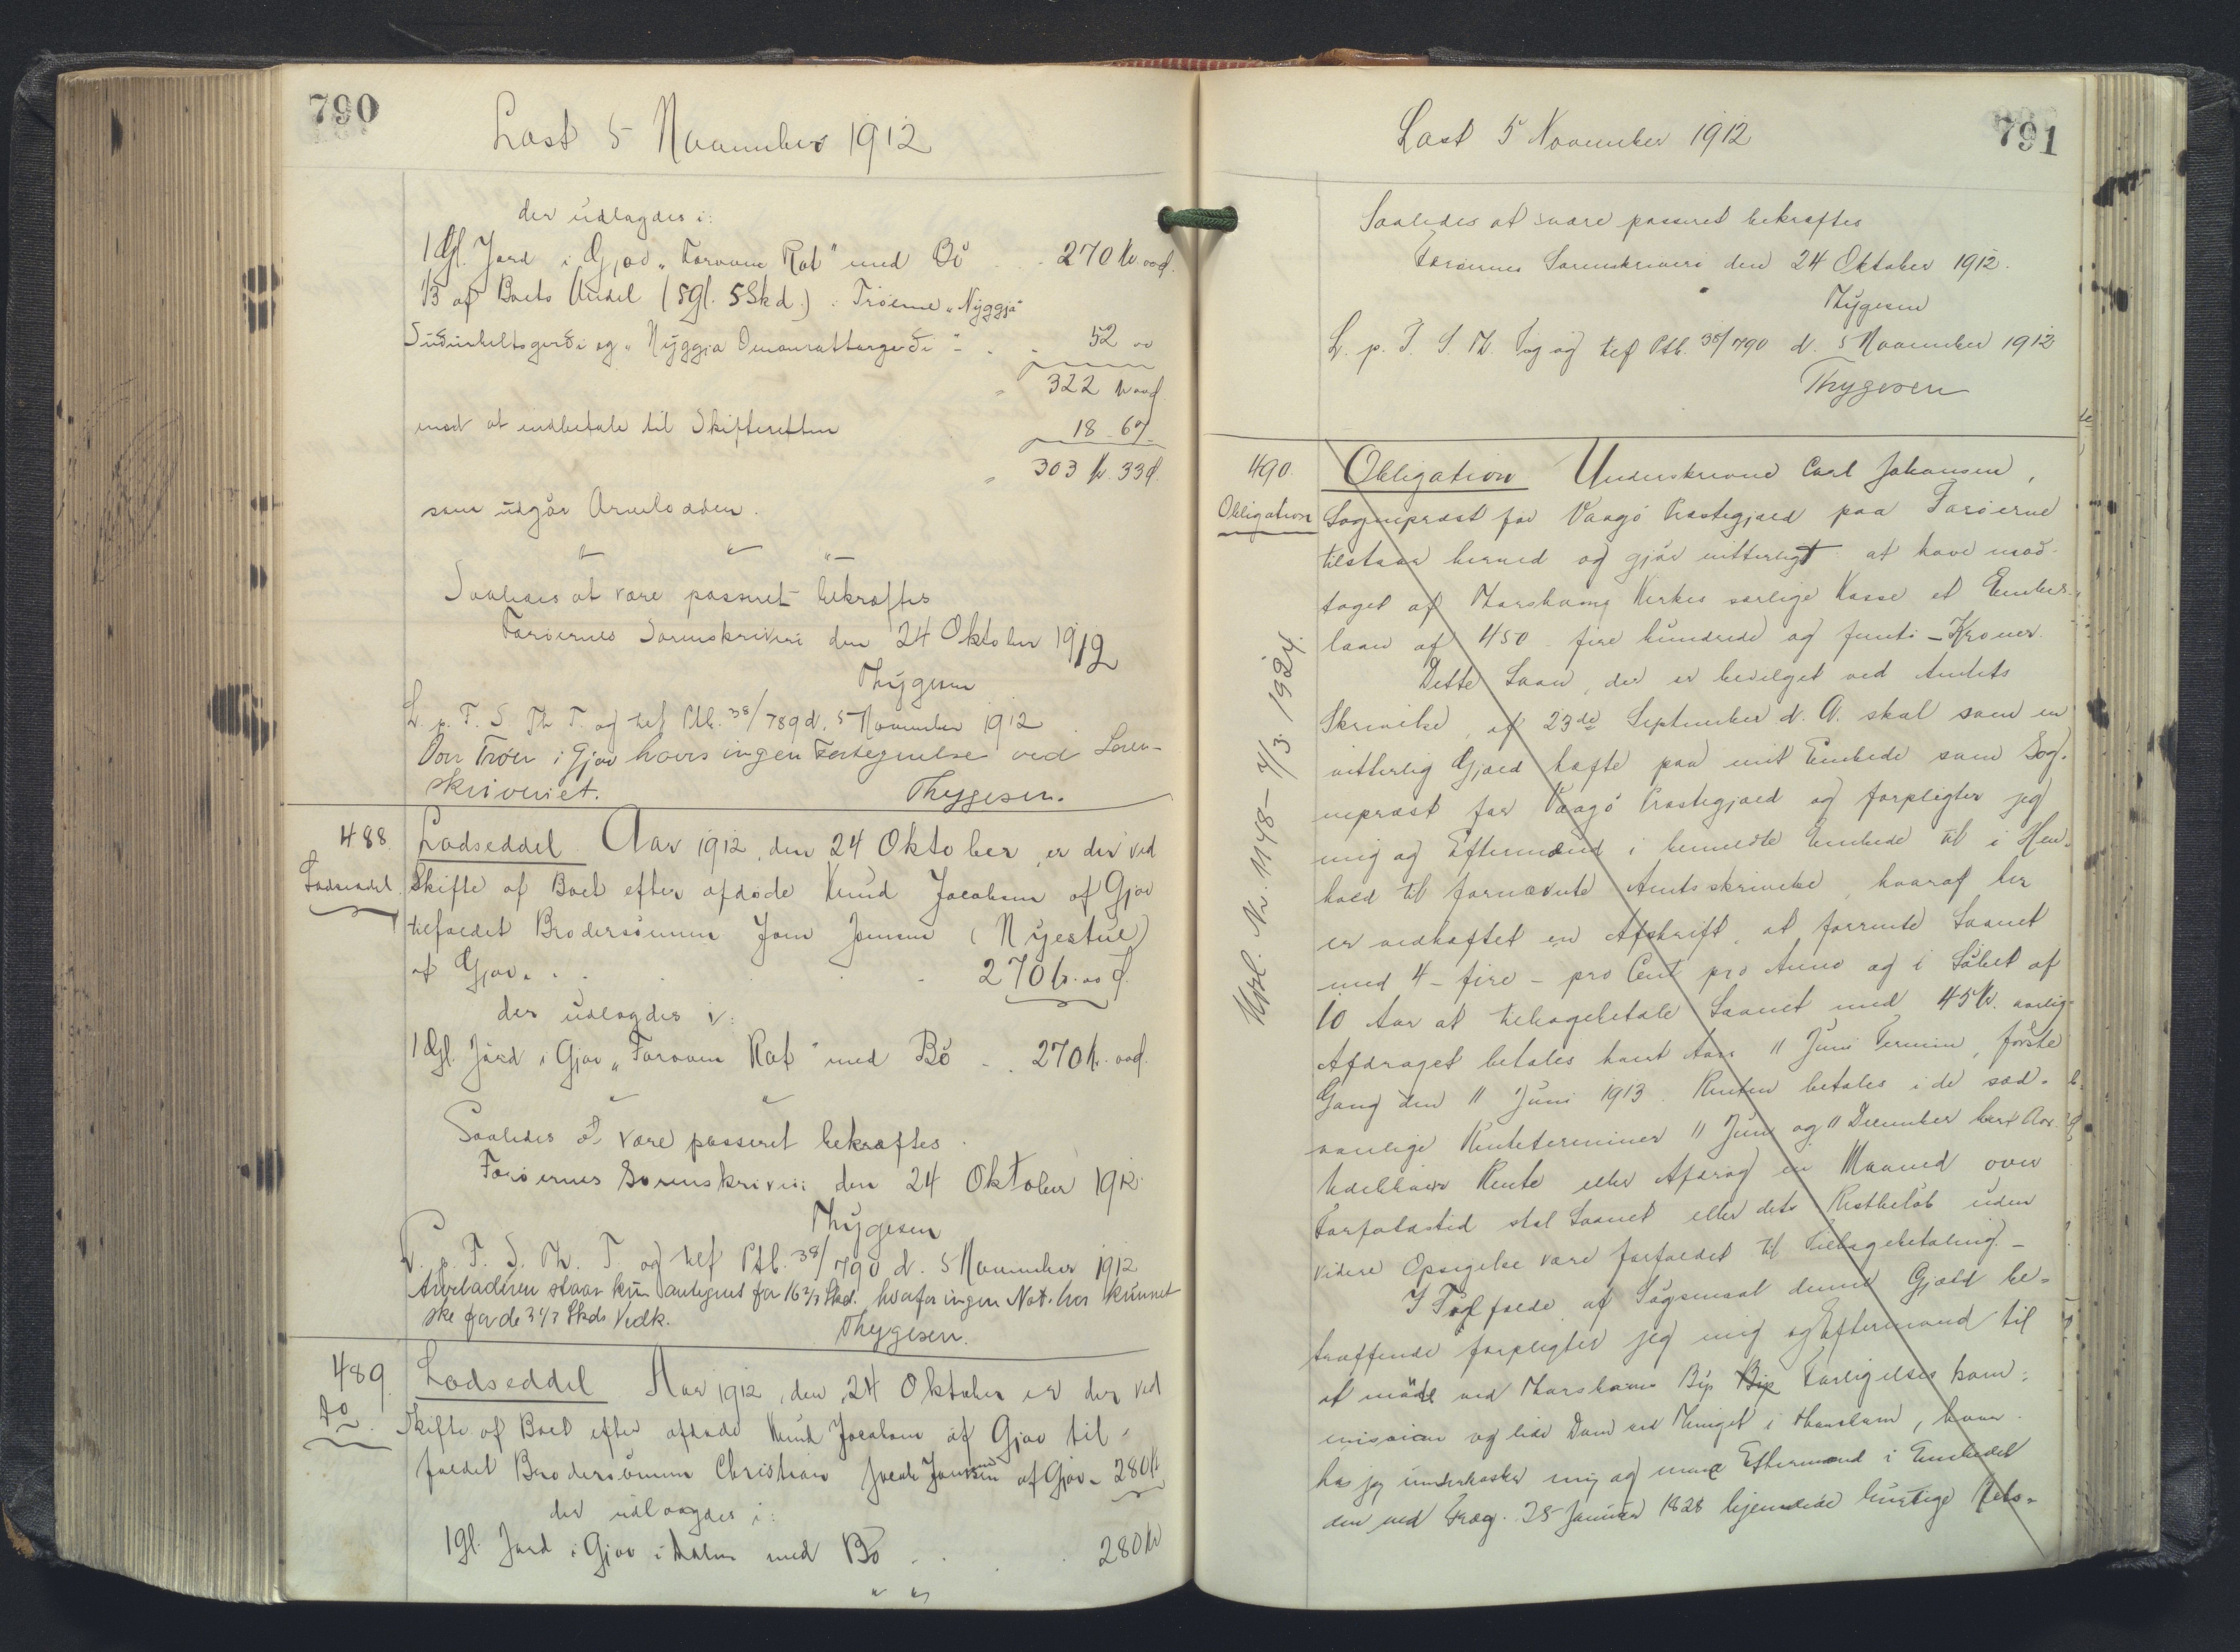 790
Læst 5 November 1912
der udlagdes i:
1 Gl. Jord i Gjov „Farvam Rat" med Bö 270 Kr. oo Ø.
1/3 af Boets Andel (5 gl. 5 Skd.) i Tröerne „Nyggja
Suðurheltsgerði og „Nyggja Omanrattargerði" 52 oo
322 Kr oo Ø
mod at indbetale til Skifteretten 18 - 67
303 Kr. 33 Ø.
som udgör Arvelodden.
Saaledes at være passeret bekræftes
Færöernes Sorenskriveri den 24 Oktober 1912
Thygesen
L. p. F. S. Th T. og tef Ptb. 38/789 d. 5 November 1912
Over Tröer i Gjov haves ingen Fortegnelse ved Soren-
skriveriet. Thygesen.
488.
Lodseddel.
Lodseddel Aar 1912, den 24 Oktober er der ved
Skifte af Boet efter afdöde Knud Jacobsen af Gjov
tilfaldet Brodersönnen Jom Joensen (Nyestue)
af Gjov. 270 Kr. oo Ø.
der udlagdes i:
1 Gl. Jord i Gjov „Farvam Rat" med Bö 270 Kr. oo Ø.
Saaledes at være passeret bekræftes
Færöernes Sorenskriveri den 24 Oktober 1912
Thygesen
L. p. F. S. Th. T. og tef Ptb. 38/790 d. 5 November 1912
Arveladeren staar kun antegnet for 16 2/3 Skd. hvorfor ingen Not. har kunnet
ske for de 3 1/3 Skds Vedk. Thygesen.
489.
do
Lodseddel Aar 1912, den 24 Oktober er der ved
Skifte af Boet efter afdöde Knud Jacobsen af Gjov til-
faldet Brodersönnen Christian Jacob Joensen af Gjov 280 Kr
der udlagdes i:
1 gl. Jord i Gjov i Halm med Bö 280 Kr
791
Læst 5 November 1912
Saaledes at være passeret bekræftes
Færöernes Sorenskriveri den 24 Oktober 1912.
Thygesen
L. p. F. S. Th. T og tef Ptb. 38/790 d. 5 November 1912
Thygesen
490.
Obligation
Udsl. Nr. 1148 - 7/3. 1924.
Obligation Underskrevne Carl Johansen,
Sognepræst for Vaagö Præstegjæld paa Færöerne
tilstaar herved og gjör vitterligt at have mod-
taget af Thorshavns Kirkes særlige Kasse et Embeds-
laan af 450 fire hundrede og femti - Kroner.
Dette Laan, der er bevilget ved Amtets
Skrivelse af 23de September d. A. skal som en
vitterlig Gjæld hæfte paa mit Embede som Sog-
nepræst for Vaagö Præstegjæld og forpligter jeg
mig og Eftermænd i bemeldte Embede til i Hen-
hold til fornævnte Amtsskrivelse, hvoraf her
er vedhæftet en Afskrift, at forrente Laanet
med 4 - fire - pro Cent pro Anno og i Löbet af
10 Aar at tilbagebetale Laanet med 45 Kr. aarlig
Afdraget betales hvert Aars 11 Juni Termin, förste
Gang den 11 Juni 1913. Renten betales i de sæd-
vanlige Renteterminer 11 Juni og 11 December hvert Aar.
Udebliver Rente eller Afdrag en Maaned over
Forfaldstid skal Laanet eller dets Restbelöb uden
videre Opsigelse være forfaldet til Tilbagebetaling. -
I Tilfælde af Sögsmaal denne Gjæld be-
træffende forpligter jeg mig og Eftermænd til
at möde ved Thorshavns Bys Bys Forligelses kom-
mission og lide Dom ved Thinget i Thorshavn, hvor-
hos jeg underkaster mig og mine Eftermænd i Embedet
den ved Frdg. 25 Januar 1828 hjemlede hurtige Rets-